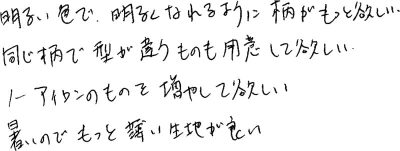 明るい色で、明るくなれるように柄がもっと欲しい。
同じ柄で型が違うものも用意して欲しい.
ノーアイロンのものを増やして欲しい
暑いのでもっと薄い生地が良い